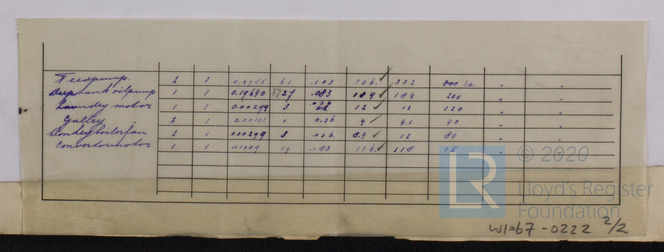 Feedpump. 2 1 61 .103 332
Deeptank oilpump 1 1 0.19640 37 .083 18.4 18.4 200
Laundry motor 1 1 0.00299 3 12 12 120
Galley 2 1 1 .036 4 41 40
Donkeyboilerfan 2 1 0.00299 3 .036 8.4 12 80
Convertormotor 1 1 19 .083 11.6 11.8 15
© 2020
LR
Lloyd's Register
Foundation
W1067-0222 2/2